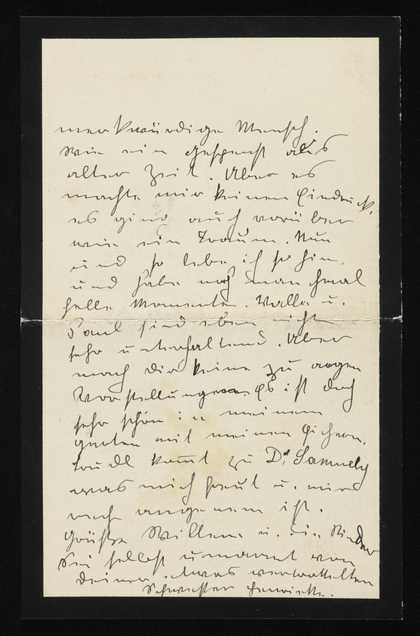 merkwürdige Mensch.
Wie ein Gespenst aus
alter Zeit. Aber es
machte mir keinen Eindruck,
es ging auch vorüber
wie ein Traum. Nun
und so lebe ich so hin.
und habe noch manchmal
helle Momente. Wally u.
Paul sind eben nicht
sehr unterhaltend. Aber
mach dir keine zu argen
Vorstellungen. Es ist doch
sehr schön in meinem
Garten mit meinen
kommt zu Dr Samuely
was mich freut u. mir
auch angenehm ist.
Grüße Willem u. die Kinder
Sei selbst umarmt von
Deiner etwas vertrottelten
Schwester Henriette.